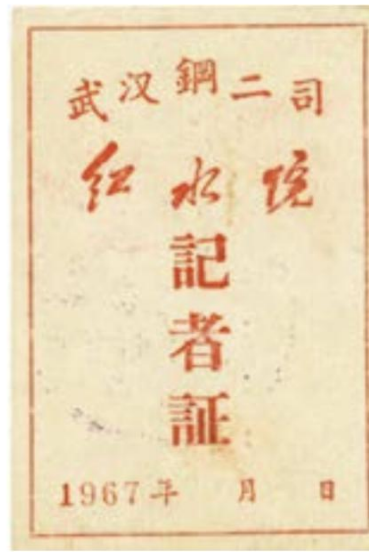 武汉鋼二司
红水院
記者証
1967年 月 日